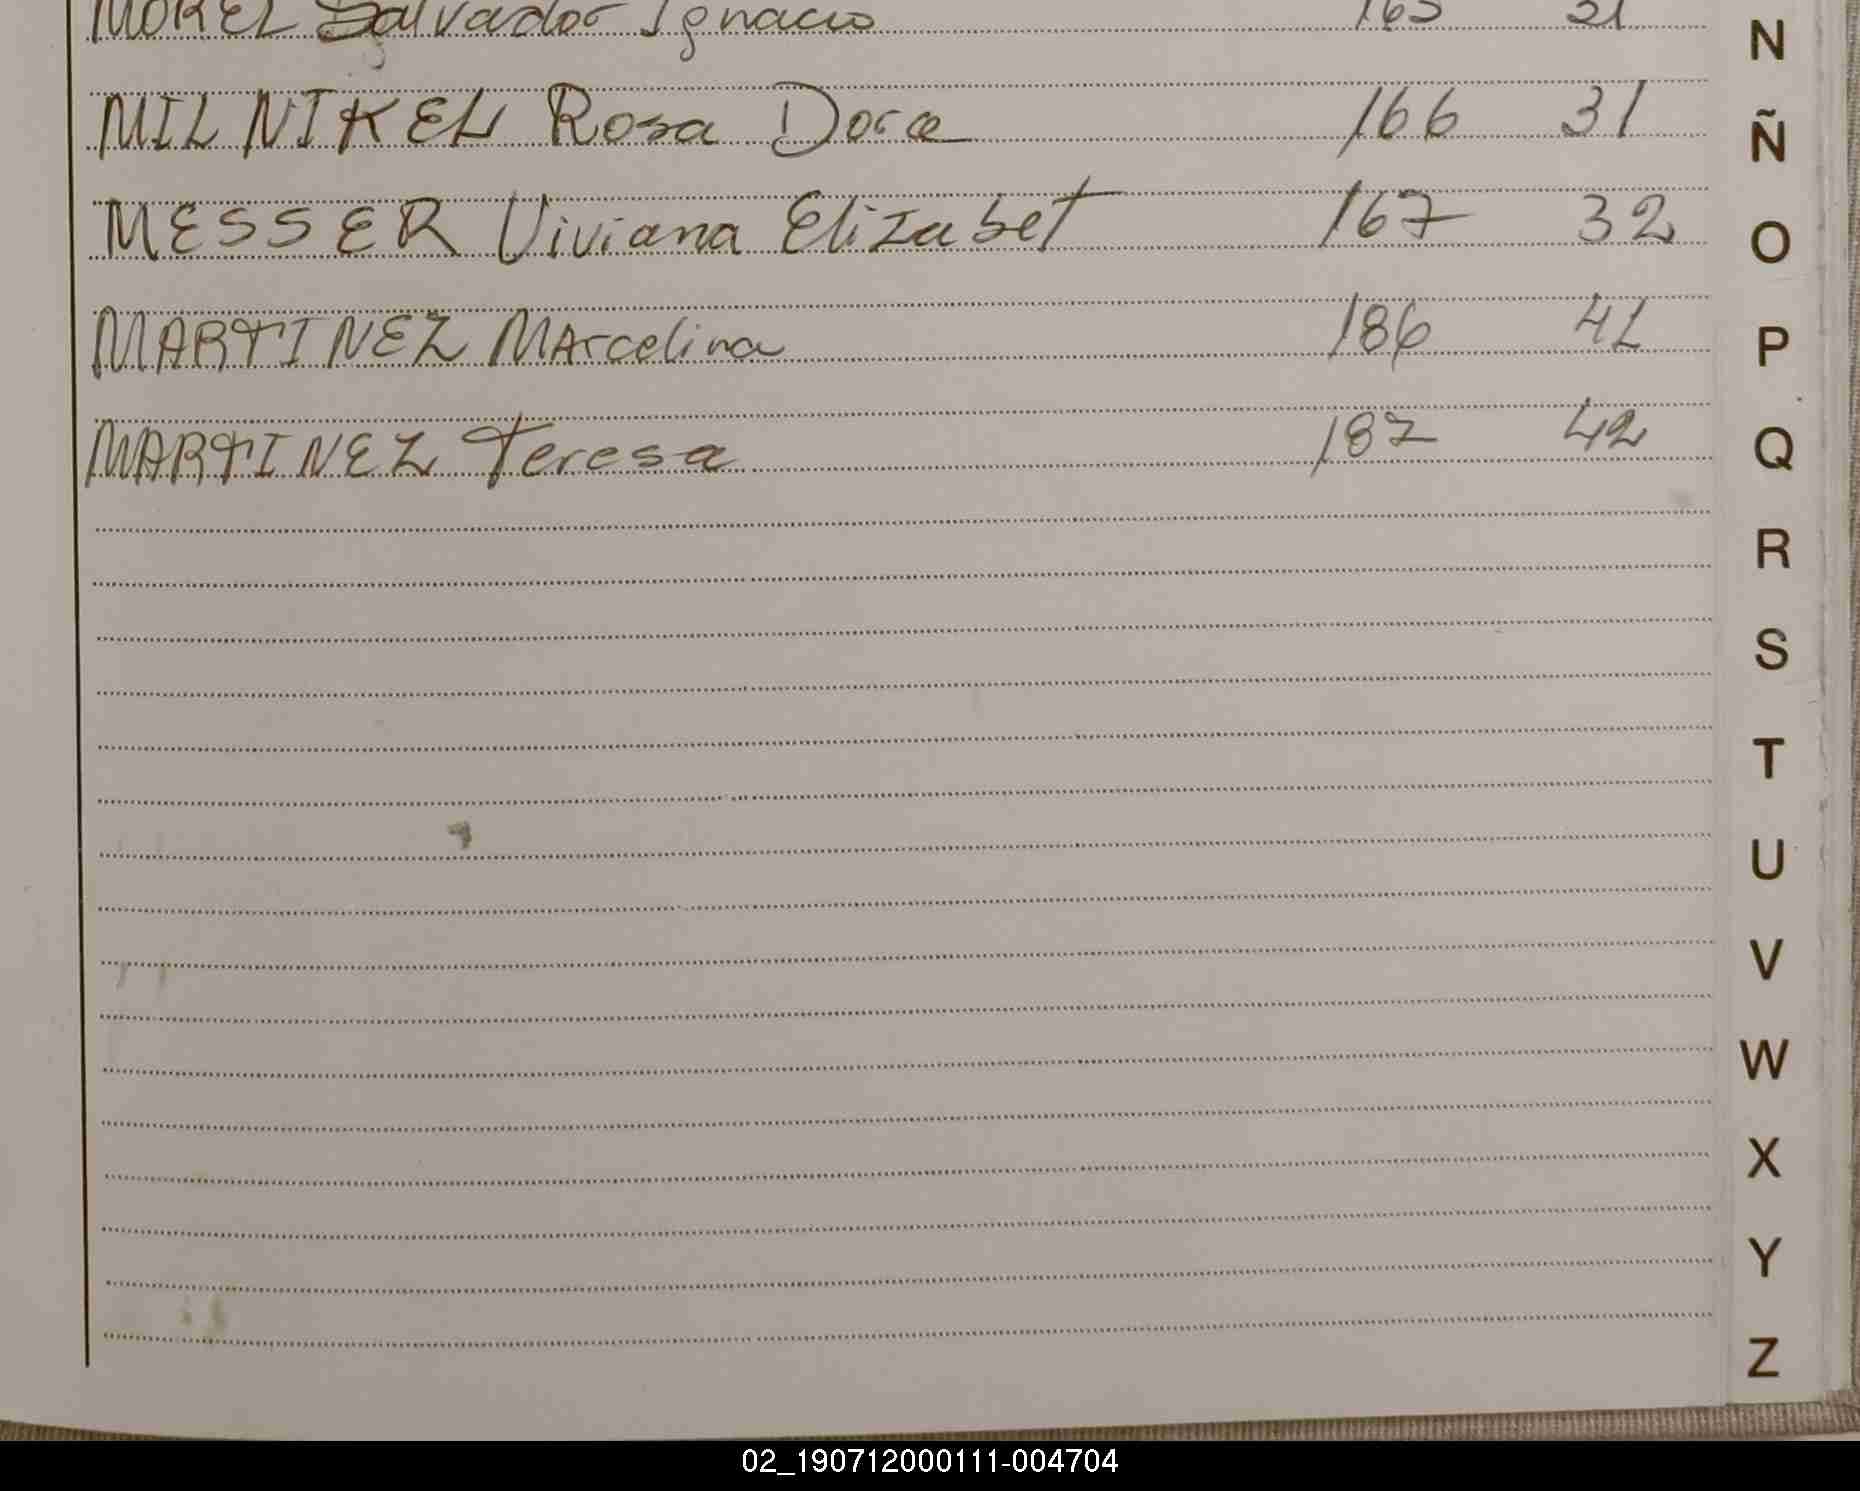 MOREL Salvador Ignacio 165 31
MILNIKEL Rosa Dora 166 31
MESSER Viviana Elizabet 167 32
MARTINEZ MArcelina 186 41
MARTINEZ Teresa 187 42
N
Ñ
O
P
Q
R
S
T
U
V
W
X
Y
Z
02_190712000111-004704